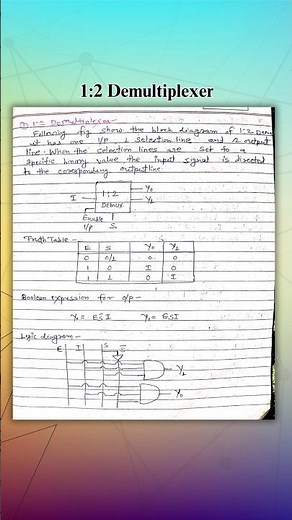 1:2 Demultiplexer
1:2 Demultiplexer-
Following fig show the block diagram of 1:2 Demux
it has one I/P 1 selection line and 2 output
line. When the selection lines are set to a
specific binary value the input signal is directed
to the corresponding output line.
I
1:2
Demux
Y₀
Y₁
Enable
I/P
S₀
Truth Table-
E S Y₀ Y₁
0 0/1 0 0
1 0 I 0
1 1 0 I
Boolean expression for o/p-
Y₀ = ES̅I Y₁ = ESI
Logic diagram-
E I S S̅
Y₁
Y₀